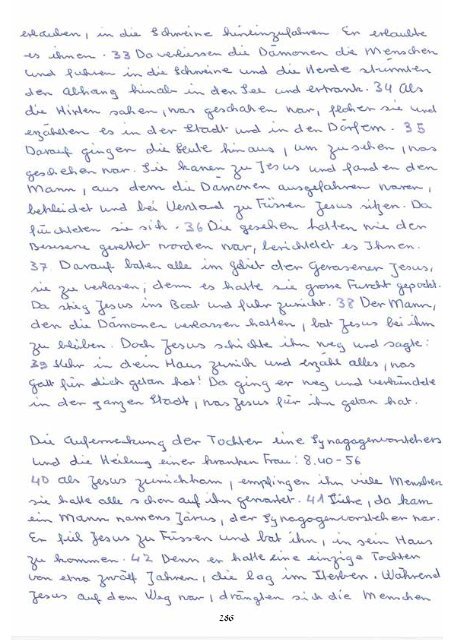 erlauben, in die Schweine hineinzufahren Er erlaubte
es ihnen. 33 Da verliessen die Dämonen die Menschen
und fuhren in die Schweine und die Herde stürmten
den Abhang hinab in den See und ertrank. 34 Als
die Hirten sahen, was geschehen war, flohen sie und
erzählten es in der Stadt und in den Dörfern. 35
Darauf gingen die Leute hinaus, um zu sehen, was
geschehen war. Sie kamen zu Jesus und fanden den
Mann, aus dem die Dämonen ausgefahren waren,
bekleidet und bei Verstand zu Füssen Jesus sitzen. Da
fürchteten sie sich. 36 Die gesehen hatten wie der
Besessene gerettet worden war, berichtet es Ihnen.
37 Darauf baten alle im Gebiet der Gerasener Jesus,
sie zu verlassen, denn es hatte sie grosse Furcht gepackt.
Da stieg Jesus ins Boot und fuhr zurück. 38 Der Mann,
den die Dämonen verlassen hatten, bat Jesus bei ihm
zu bleiben. Doch Jesus schickte ihn weg und sagte:
39 Kehr in dein Haus zurück und erzähl alles, was
Gott für dich getan hat! Da ging er weg und verkündete
in der ganzen Stadt, was Jesus für ihn getan hat.
Die Auferweckung der Tochter eine Synagogenvorstehers
und die Heilung einer kranken Frau: 8.40-56
40 Als Jesus zurückkam, empfingen ihn viele Menschen
sie hatte alle schon auf ihn gewartet. 41 Siehe, da kam
ein Mann namens Jairus, der Synagogenvorsteher war.
Er fiel Jesus zu Füssen und bat ihn, in sein Haus
zu kommen. 42 Denn er hatte eine einzige Tochter
von etwa zwölf Jahren, die lag im Sterben. Während
Jesus auf dem Weg war, drängten sich die Menschen
286